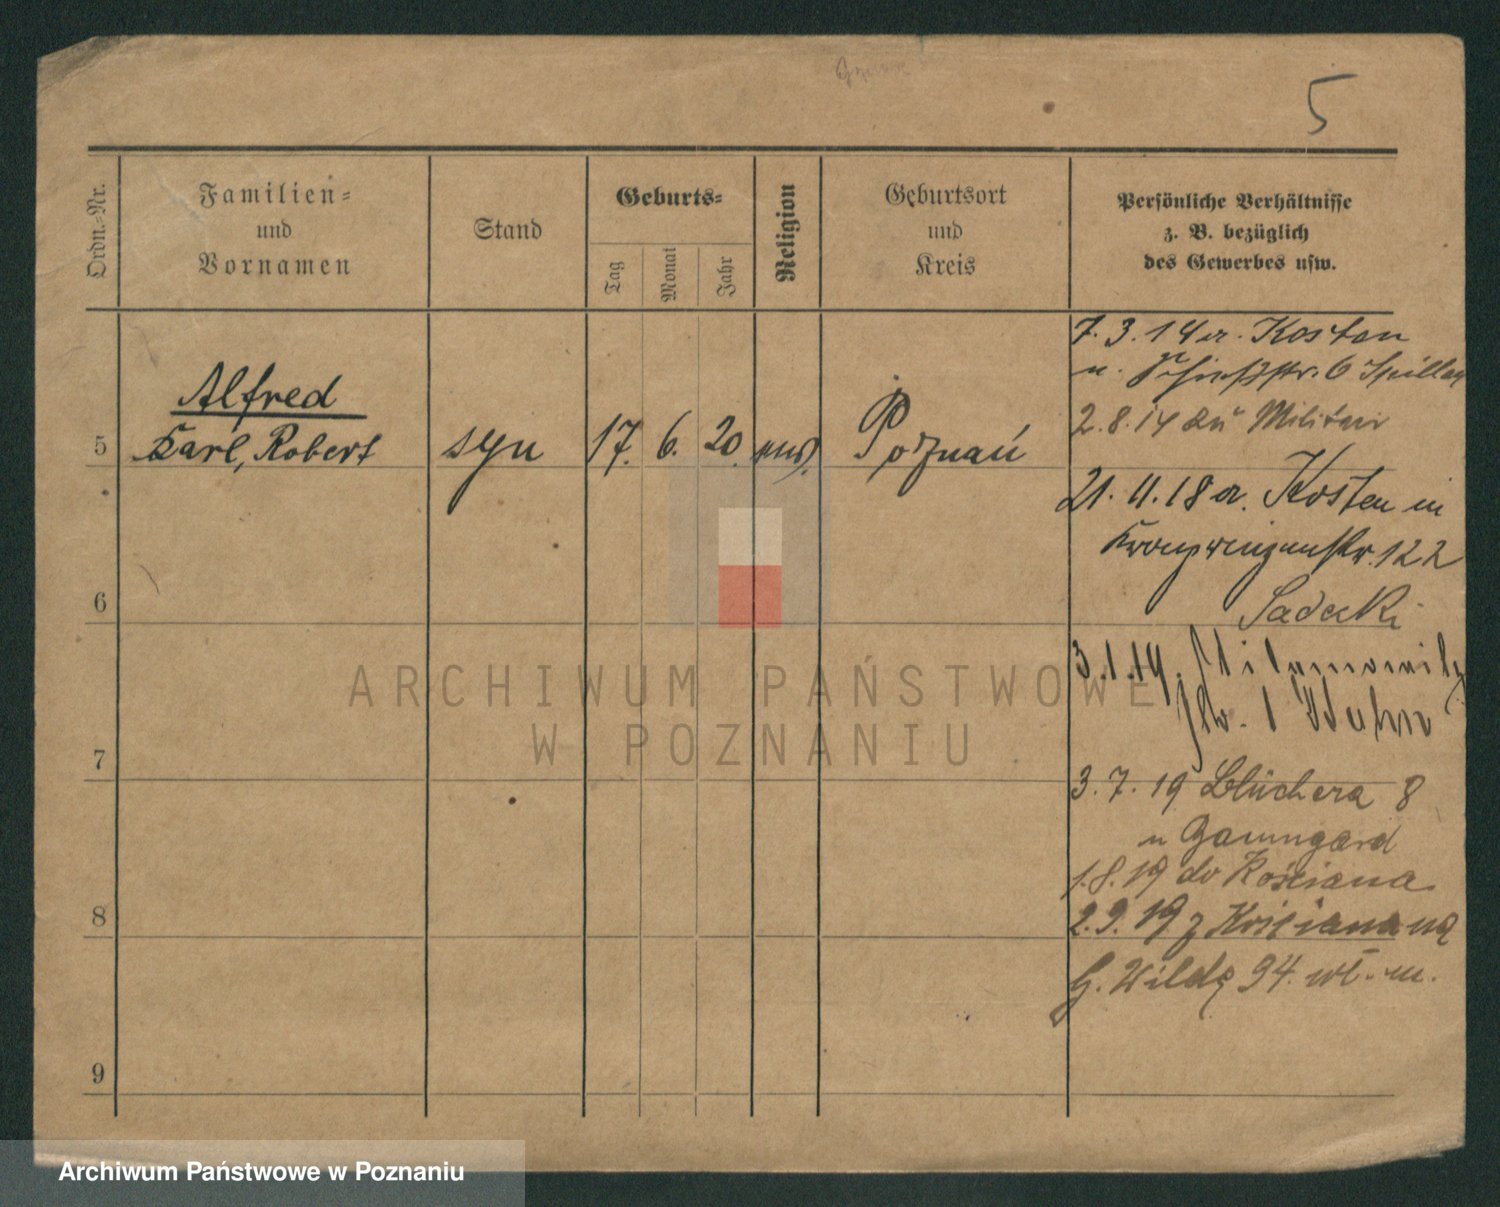 5
Ordn.-Nr.
Familien-
und
Vornamen
Stand
Geburts-
Tag
Monat
Jahr
Religion
Geburtsort
und
Kreis
Persönliche Verhältnisse
z. B. bezüglich
des Gewerbes usw.
5
Alfred
Karl, Robert
syn
17.
6.
20.
Poznań
7. 3. 14 Kosten
6
2. 8. 14 zu Militair
21. 11. 18 Kosten in
Kronprinzenstr. 122
Sadecki
3. 1. 19.
1
3. 7. 19 Blüchera 8
u
1. 8. 19 do Kościana
2. 9. 19 z Kościana na
G. Wildę 94.
6
7
8
9
ARCHIWUM PAŃSTWOWE
W POZNANIU
Archiwum Państwowe w Poznaniu